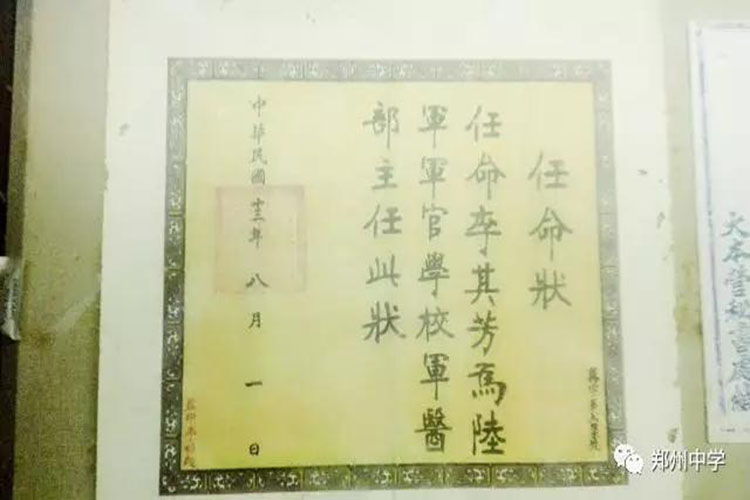 任命状
任命李其芳為陸
軍軍官學校軍醫
部主任此狀
中華民國十三年八月一日
大本營秘書處
郑州中学